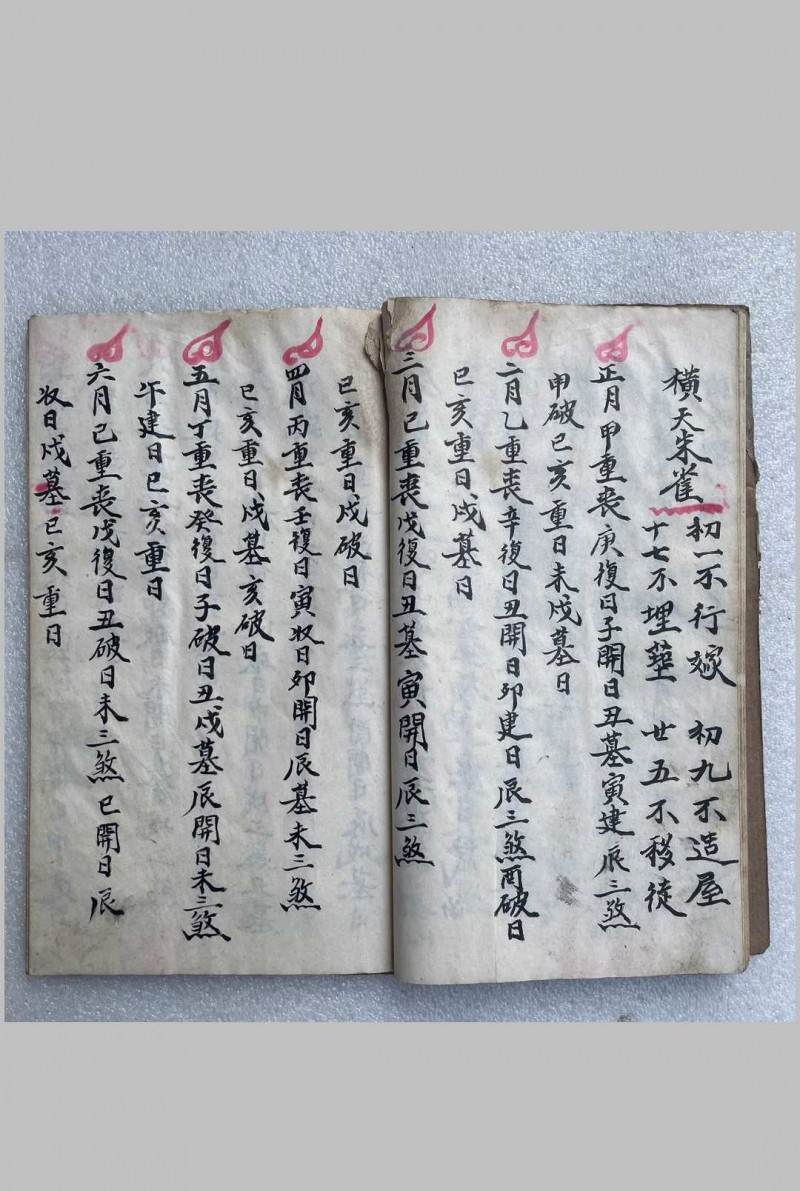 橫天朱雀
初一不行嫁 初九不造屋
十七不埋塟 廿五不移徒
正月甲重丧庚復日子開日丑墓寅建辰三煞
申破巳亥重日未戍墓日
二月乙重丧辛復日丑開日卯建日辰三煞酉破日
巳亥重日戍墓日
三月己重丧戊復日丑墓寅開日辰三煞
巳亥重日戍破日
四月丙重丧壬復日寅收日卯開日辰墓未三煞
巳亥重日戍墓亥破日
五月丁重丧癸復日子破日丑戍墓辰開日未三煞
午建日巳亥重日
六月己重丧戊復日丑破日未三煞巳開日辰
收日戍墓巳亥重日